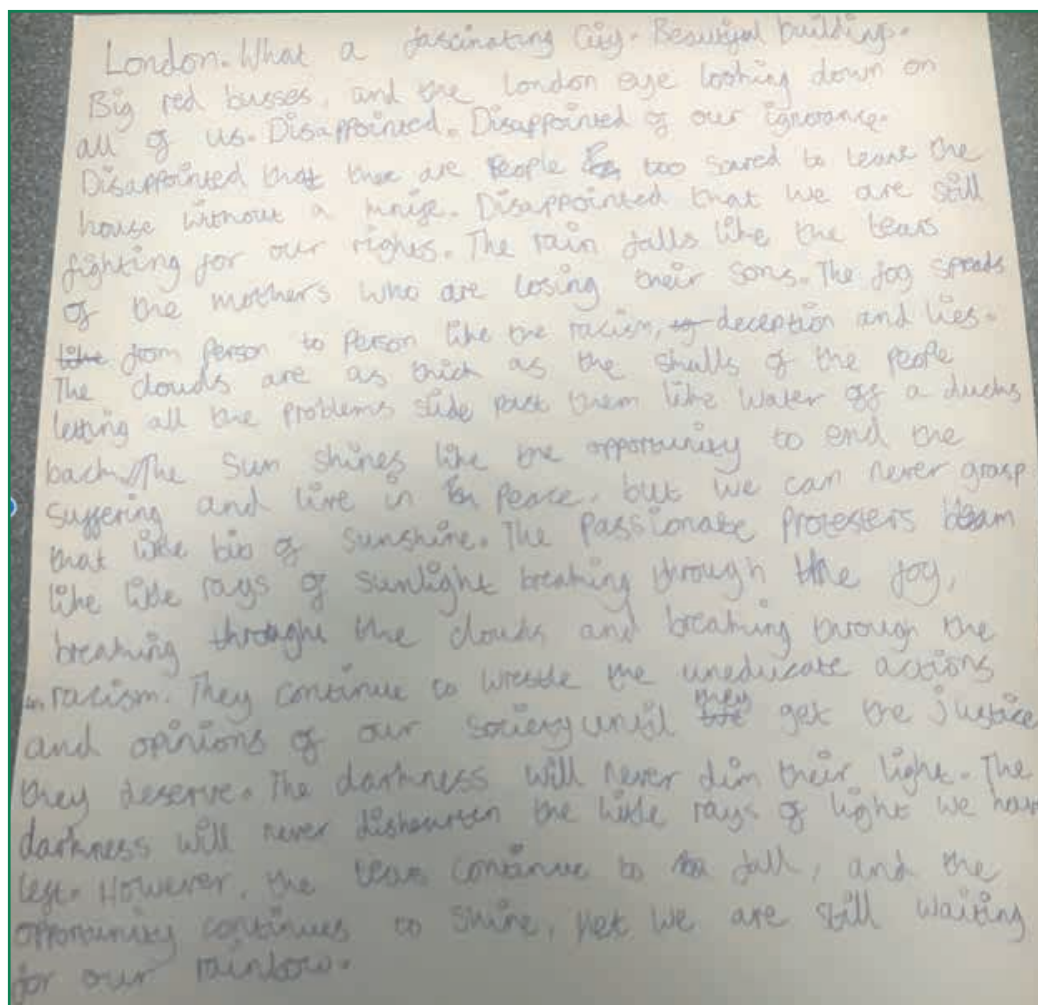 London. What a fascinating City. Beautiful buildings.
Big red busses, and the London eye looking down on
all of us. Disappointed. Disappointed of our ignorance.
Disappointed that there are People too scared to leave the
house without a knife. Disappointed that we are still
fighting for our rights. The rain falls like the tears
of the mothers who are losing their sons. The fog spreads
like from Person to Person like the racism, deception and lies.
The clouds are as thick as the skulls of the people
letting all the problems slide past them like water off a ducks
back. The sun shines like the opportunity to end the
suffering and live in Peace, but we can never grasp
that little bit of sunshine. The passionate protesters beam
like little rays of sunlight breaking through the fog,
breaking through the clouds and breaking through the
racism. They continue to wrestle the uneducate actions
and opinions of our society until they get the justice
they deserve. The darkness will never dim their light. The
darkness will never dishearten the little rays of light we have
left. However, the tears continue to fall, and the
opportunity continues to shine, yet we are still waiting
for our rainbow.